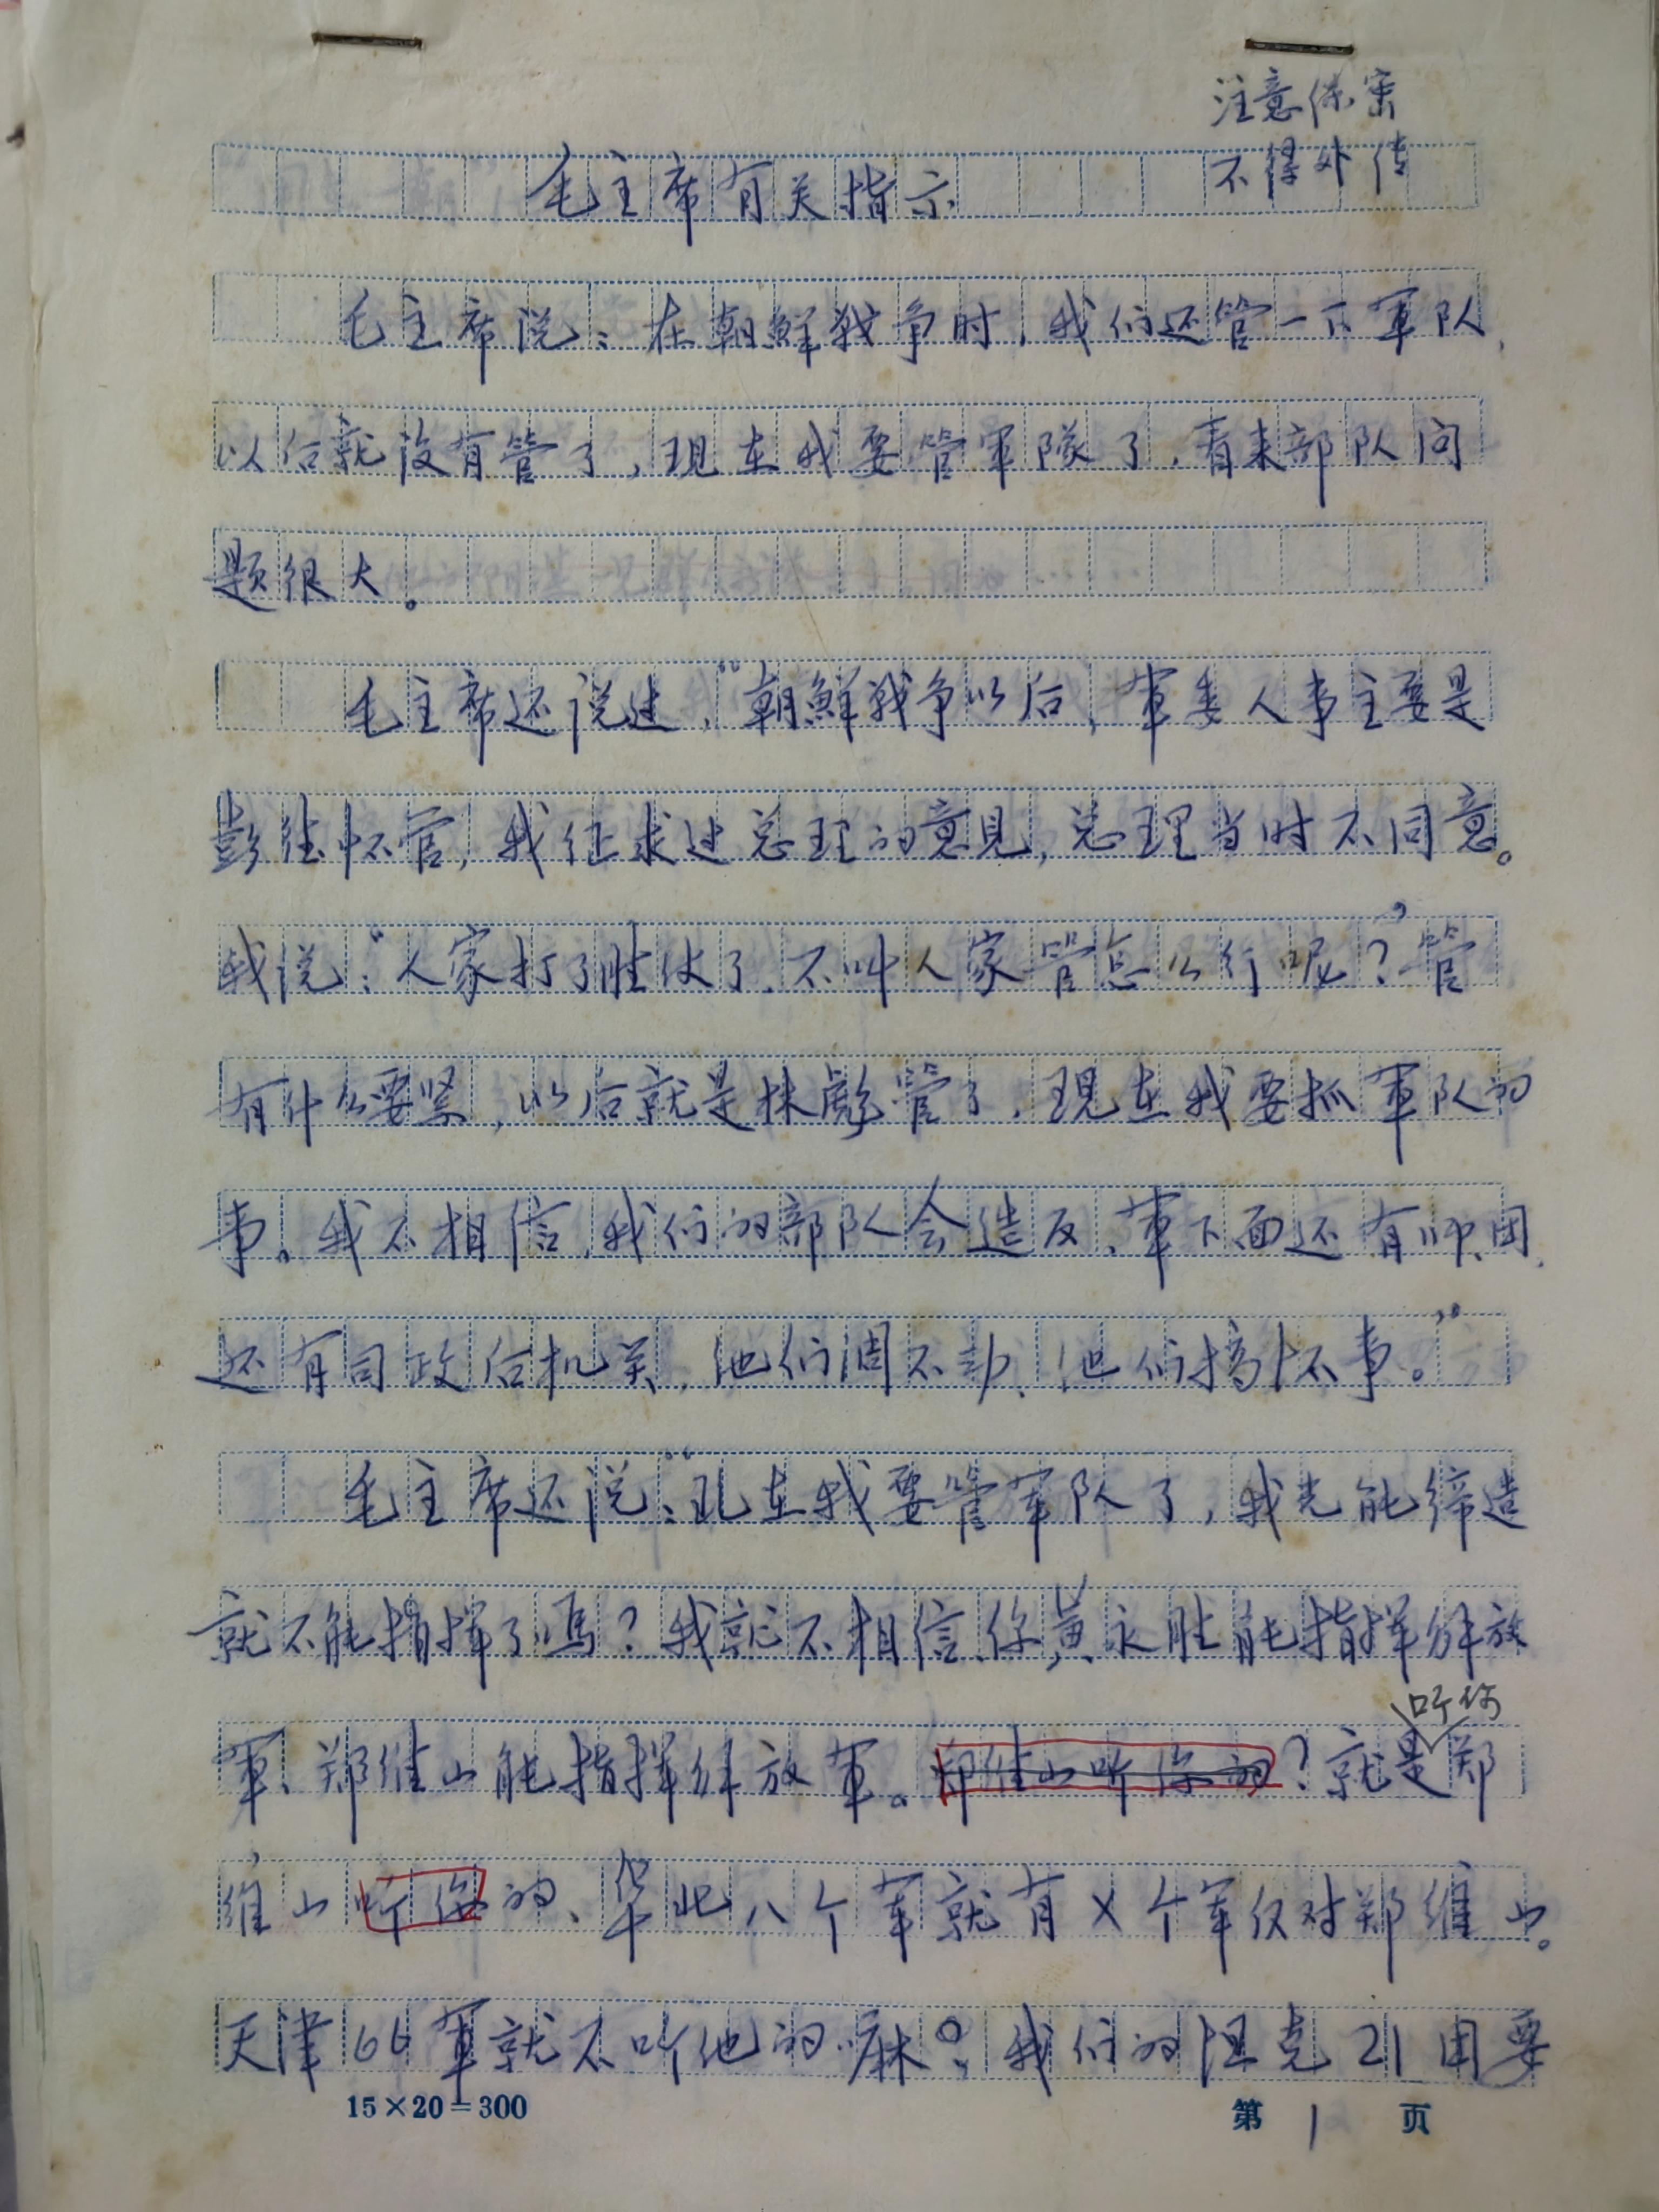 注意保密
不得外传
毛主席有关指示
毛主席说：在朝鲜战争时，我们还管一下軍队，
以后就没有管了，现在我要管軍隊了，看来部队问
题很大。
毛主席还说过，“朝鲜战争以后，軍委人事主要是
彭德怀管，我征求过总理的意见，总理当时不同意。
我说：“人家打了胜仗了，不叫人家管怎么行呢？’管
有什么要紧，以后就是林彪管了，现在我要抓軍队的
事。我不相信，我们的部队会造反，軍下面还有师、团，
还有司政后机关，他们调不动，他们搞坏事。”
毛主席还说：“现在我要管軍队了，我光能缔造
就不能指挥了嗎？我就不相信你黄永胜能指挥解放
軍、郑维山能指挥解放軍。郑维山听你的？就是郑
听你
维山听你的、华北八个軍就有X个軍仅对郑维山。
天津66軍就不听他的嘛？我们的坦克21团要
15×20=300
第 1 页